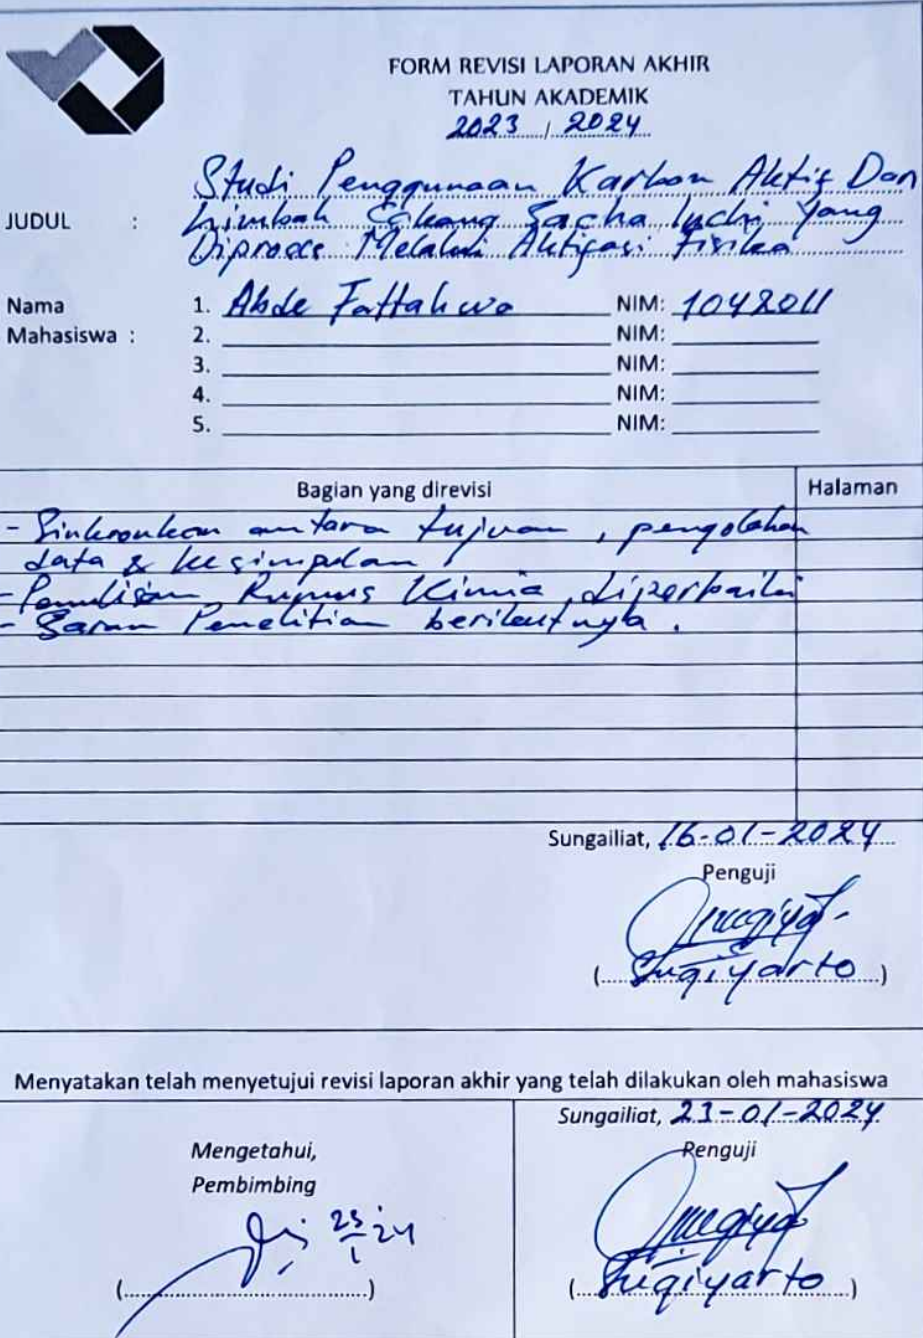 FORM REVISI LAPORAN AKHIR
TAHUN AKADEMIK
2023 / 2024
JUDUL : Studi Penggunaan Karbon Aktif Dari
Limbah Cakang Sacha Inchi Yang
Diproses Melalui Aktifasi Fisika
Nama
Mahasiswa :
1. Abde Fattahwa NIM: 1042011
2. NIM:
3. NIM:
4. NIM:
5. NIM:
Bagian yang direvisi Halaman
- Sinkronkan antara tujuan, pengolahan
data & kesimpulan
- Penulisan Rumus Kimia diperbaiki
- Saran Penelitian berikutnya.
Sungailiat, 16-01-2024
Penguji
(Sugiyarto)
Menyatakan telah menyetujui revisi laporan akhir yang telah dilakukan oleh mahasiswa
Mengetahui,
Pembimbing
25/1 24
(....................................)
Sungailiat, 23-01-2024
Penguji
(Sugiyarto)